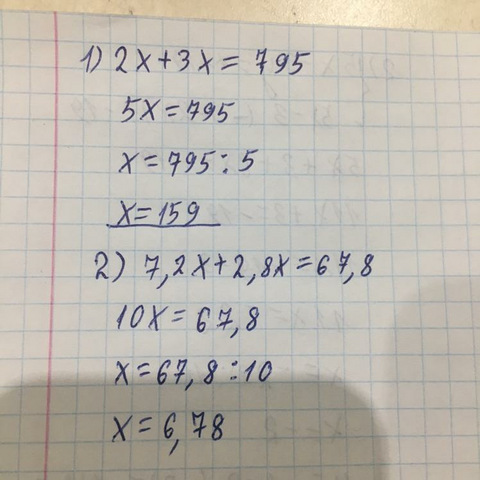 1) 2x+3x=795
5x=795
x=795:5
x=159
2) 7,2x+2,8x=67,8
10x=67,8
x=67,8:10
x=6,78